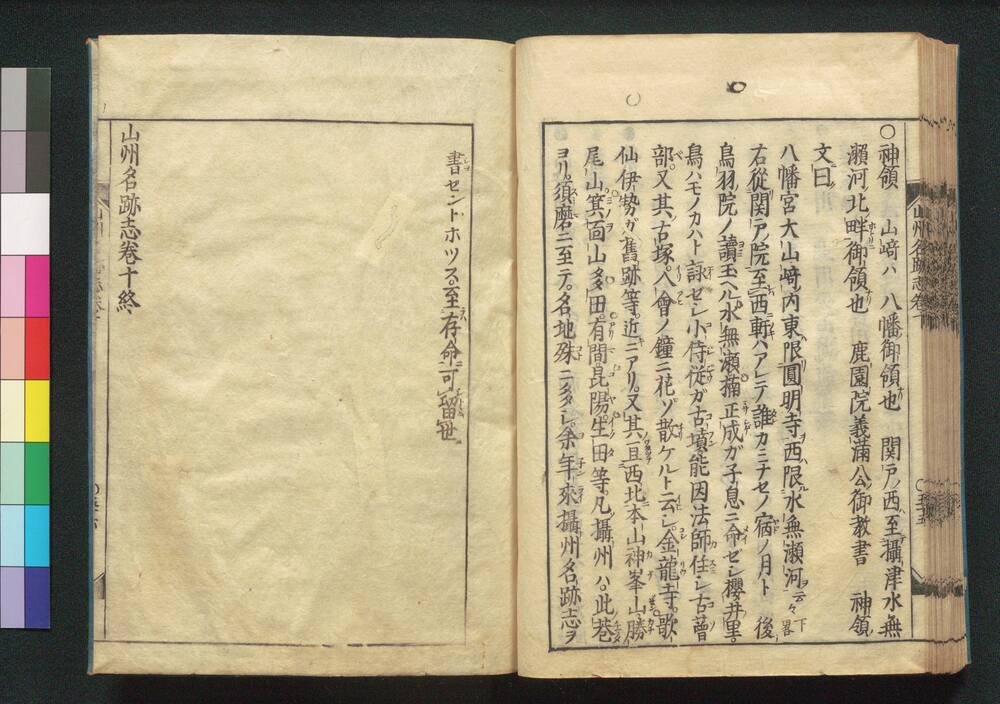 〇神領　山﨑ハ八幡御領也　関戸ノ西至攝津水無
瀬河北畔御領也　鹿園院義滿公御教書　神領
文曰
八幡宮大山﨑内東限圓明寺西限水無瀬河云々下畧
右從関戸院至西斬ハアレテ誰カミナセノ宿ノ月ト　後
鳥羽院ノ讀玉ヘル水無瀬楠正成ガ子息ニ命ゼシ櫻井里
鳥ハモノカハト詠ゼシ小侍従ガ古墳能因法師住シ古曽
部又其古塚入會ノ鐘ニ花ゾ散ケルト云シ金龍寺歌
仙伊勢ガ舊跡等近ニアリ又其且西北本山神峯山勝
尾山箕面山多田有間昆陽生田等凡攝州ハ此巷
ヨリ須磨ニ至テ名地殊ニ多シ余年來攝州名跡志ヲ
書セントホツス至存命可留世
山州名跡志卷十終
山州名跡志卷十